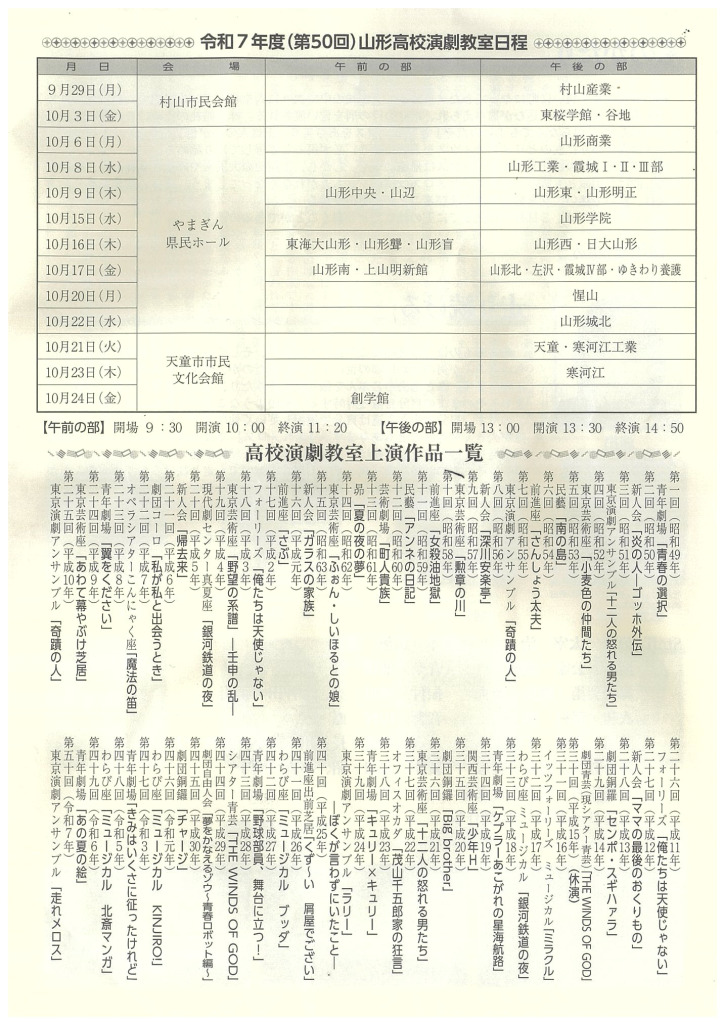 令和７年度(第50回)山形高校演劇教室日程
月　日　会　場　午前の部　午後の部
９月29日(月)　村山市民会館　村山産業
10月３日(金)　東桜学館・谷地
10月６日(月)　やまぎん県民ホール　山形商業
10月８日(水)　山形工業・霞城Ⅰ・Ⅱ・Ⅲ部
10月９日(木)　山形中央・山辺　山形東・山形明正
10月15日(水)　山形学院
10月16日(木)　東海大山形・山形聾・山形盲　山形西・日大山形
10月17日(金)　山形南・上山明新館　山形北・左沢・霞城Ⅳ部・ゆきわり養護
10月20日(月)　惺山
10月22日(水)　山形城北
10月21日(火)　天童市市民文化会館　天童・寒河江工業
10月23日(木)　寒河江
10月24日(金)　創学館
【午前の部】開場 9：30　開演 10：00　終演 11：20　【午後の部】開場 13：00　開演 13：30　終演 14：50
高校演劇教室上演作品一覧
第一回（昭和49年）
青年劇場「青春の選択」
第二回（昭和50年）
新人会「炎の人―ゴッホ外伝」
第三回（昭和51年）
東京演劇アンサンブル「十二人の怒れる男たち」
第四回（昭和52年）
東京芸術座「小麦色の仲間たち」
第五回（昭和53年）
民藝「南の島」
第六回（昭和54年）
前進座「さんしょう太夫」
第七回（昭和55年）
東京演劇アンサンブル「奇蹟の人」
第八回（昭和56年）
新人会「深川安楽亭」
第九回（昭和57年）
東京芸術座「勲章の川」
第十回（昭和58年）
前進座「女殺油地獄」
第十一回（昭和59年）
民藝「アンネの日記」
第十二回（昭和60年）
芸術劇場「町人貴族」
第十三回（昭和61年）
昴「夏の夜の夢」
第十四回（昭和62年）
東京芸術座「ふぉん・しいほるとの娘」
第十五回（昭和63年）
新人会「ガラスの家族」
第十六回（平成元年）
前進座「さぶ」
第十七回（平成２年）
フォーリーズ「俺たちは天使じゃない」
第十八回（平成３年）
東京芸術座「野望の系譜」―壬申の乱―
第十九回（平成４年）
現代劇センター真夏座「銀河鉄道の夜」
第二十回（平成５年）
新人会「帰去来」
第二十一回（平成６年）
劇団コーロ「私が私と出会うとき」
第二十二回（平成７年）
オペラシアターこんにゃく座「魔法の笛」
第二十三回（平成８年）
青年劇場「翼をください」
第二十四回（平成９年）
東京芸術座「あわて幕やぶけ芝居」
第二十五回（平成10年）
東京演劇アンサンブル「奇蹟の人」
第二十六回（平成11年）
フォーリーズ「俺たちは天使じゃない」
第二十七回（平成12年）
新人会「ママの最後のおくりもの」
第二十八回（平成13年）
劇団銅鑼「センポ・スギハァラ」
第二十九回（平成14年）
劇団青芸（現シアター青芸）「THE WINDS OF GOD」
第三十回（平成15年）（休演）
第三十一回（平成16年）
イッツフォーリーズ　ミュージカル「ミラクル」
第三十二回（平成17年）
わらび座　ミュージカル「銀河鉄道の夜」
第三十三回（平成18年）
青年劇場「ケプラーあこがれの星海航路」
第三十四回（平成19年）
関西芸術座「少年Ｈ」
第三十五回（平成20年）
劇団銅鑼「Big brother」
第三十六回（平成21年）
東京芸術座「十二人の怒れる男たち」
第三十七回（平成22年）
オフィスオカダ「茂山千五郎家の狂言」
第三十八回（平成23年）
青年劇場「キュリー×キュリー」
第三十九回（平成24年）
東京演劇アンサンブル「ラリー」
―ぼくが言わずにいたこと―
第四十回（平成25年）
前進座出前芝居「くず〜い　屑屋でござい」
第四十一回（平成26年）
わらび座「ミュージカル　ブッダ」
第四十二回（平成27年）
青年劇場「野球部員、舞台に立つ！」
第四十三回（平成28年）
シアター青芸「THE WINDS OF GOD」
第四十四回（平成29年）
劇団自由人会「夢をかなえるゾウ〜青春ロボット編〜」
第四十五回（平成30年）
劇団銅鑼「チャージ」
第四十六回（令和元年）
わらび座「ミュージカル　KINJIRO!」
第四十七回（令和３年）
青年劇場「きみはいくさに征ったけれど」
第四十八回（令和５年）
わらび座「ミュージカル　北斎マンガ」
第四十九回（令和６年）
青年劇場「あの夏の絵」
第五十回（令和７年）
東京演劇アンサンブル「走れメロス」